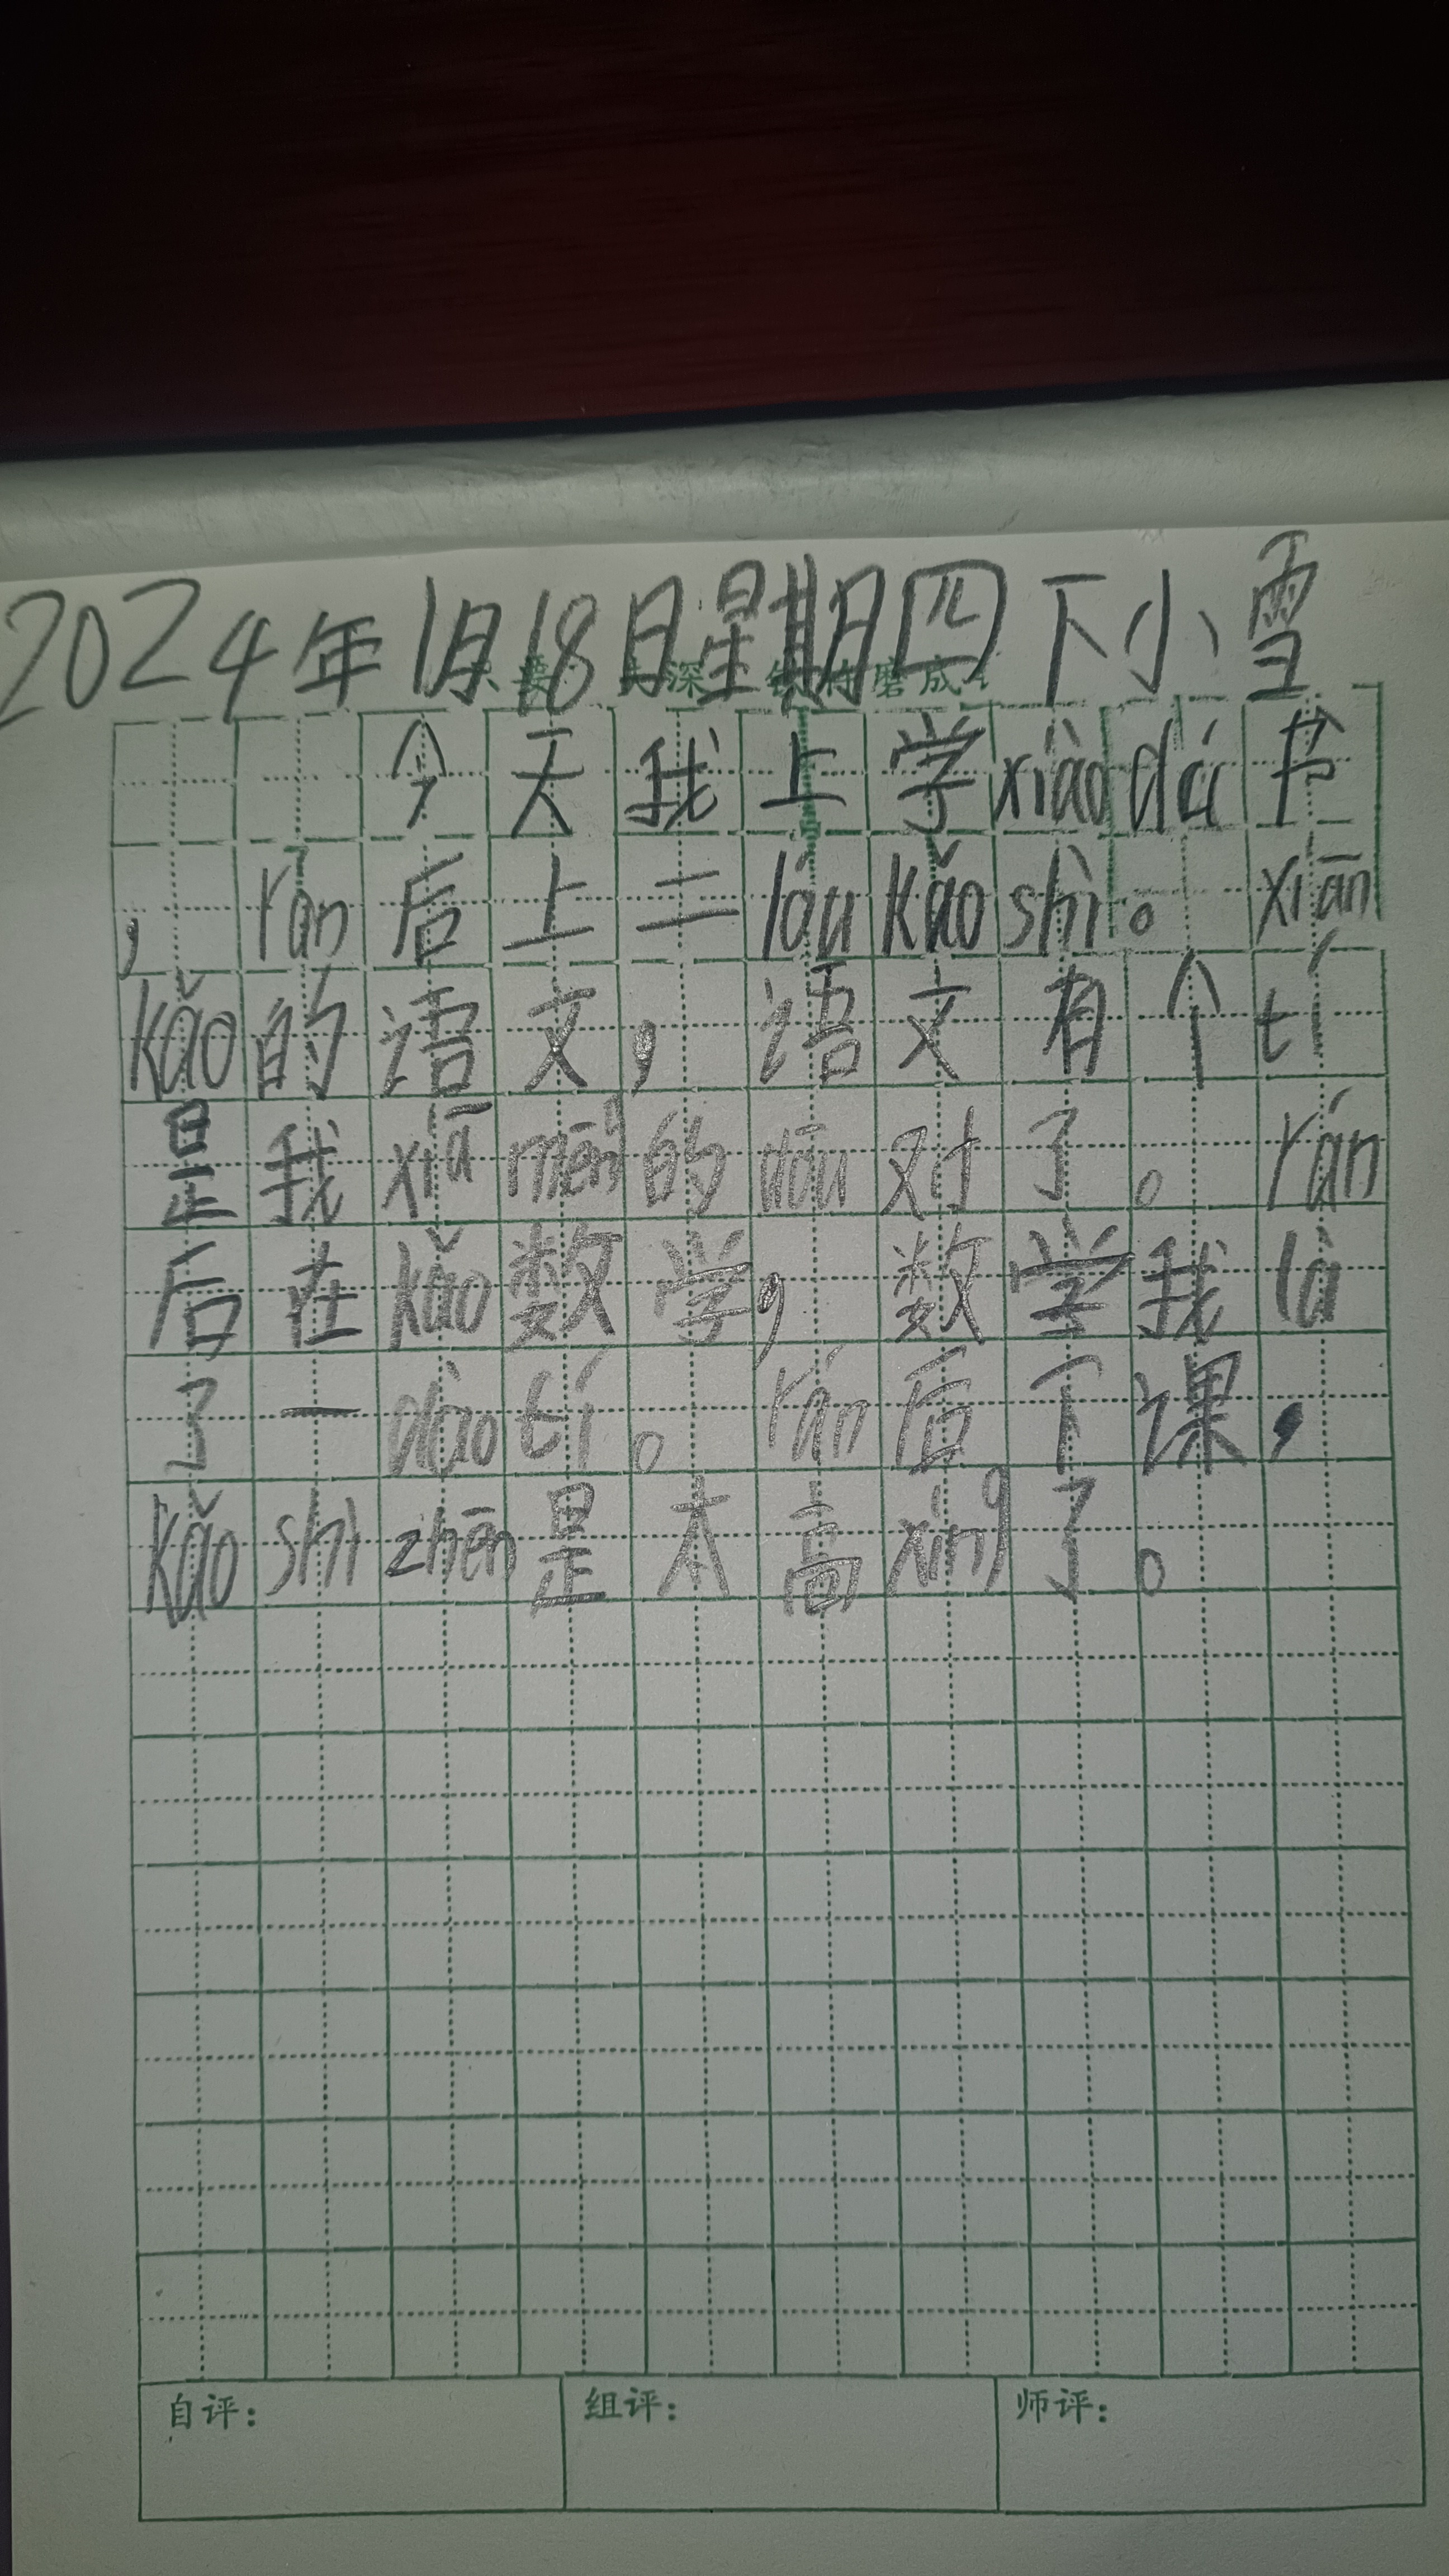 2024年1月18日星期四下小雪
今天我上学xiào dú书
，rán后上二lóu kǎo shì。xiān
kǎo的语文，语文有个tí
是我xiā mēn的dōu对了。rán
后在kǎo数学，数学我là
了一dào tí。rán后下课，
kǎo shì zhēn是太高xìng了。
自评：
组评：
师评：